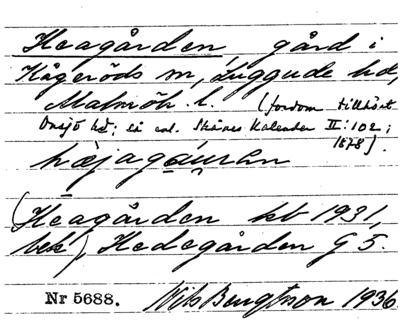 Heagården, gård i
Kågeröds sn, Luggude hd,
Malmöh. l. (fordom tillhört
Onsjö hd; så enl. Skånes Kalender II:102;
1878).
hæjagáurən
(Heagården kb 1931,
bek), Hedegården G 5.
Nr 5688. Nils Bengtsson 1936